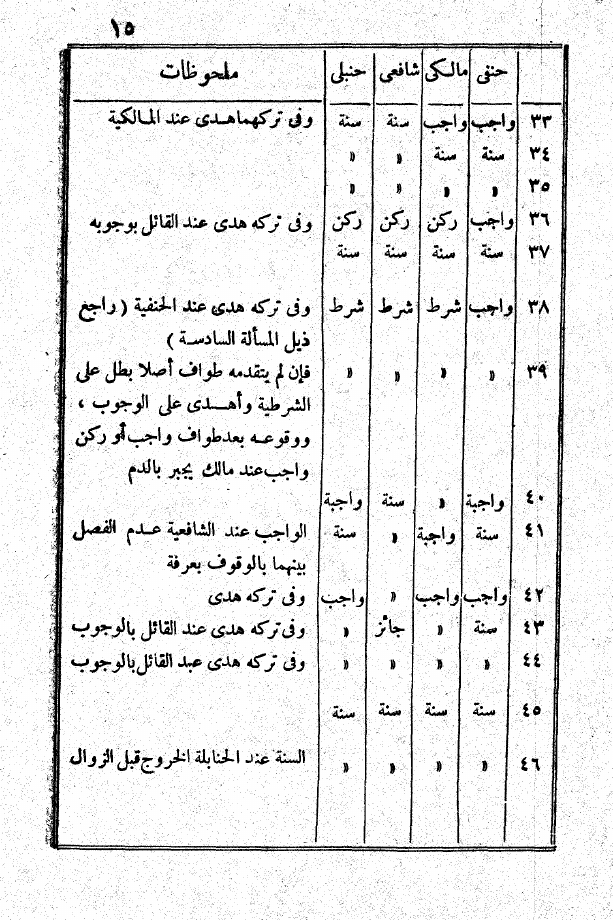 ١٥
حنفى مالكى شافعى حنبلى ملحوظات
٣٣ واجب واجب سنة سنة وفى تركهما هدى عند المالكية
٣٤ سنة سنة » »
٣٥ » » » »
٣٦ واجب ركن ركن ركن وفى تركه هدى عند القائل بوجوبه
٣٧ سنة سنة سنة سنة
٣٨ واجب شرط شرط شرط وفى تركه هدى عند الحنفية ( راجع
ذيل المسألة السادسة )
٣٩ » » » » فإن لم يتقدمه طواف أصلا بطل على
الشرطية وأهدى على الوجوب ،
ووقوعه بعد طواف واجب أو ركن
واجب عند مالك يجبر بالدم
٤٠ واجبة » سنة واجبة
٤١ سنة واجبة » سنة الواجب عند الشافعية عدم الفصل
بينهما بالوقوف بعرفة
٤٢ واجب واجب » واجب وفى تركه هدى
٤٣ سنة » جائز » وفى تركه هدى عند القائل بالوجوب
٤٤ » » » » وفى تركه هدى عبد القائل بالوجوب
٤٥ سنة سنة سنة سنة
٤٦ » » » » السنة عند الحنابلة الخروج قبل الزوال